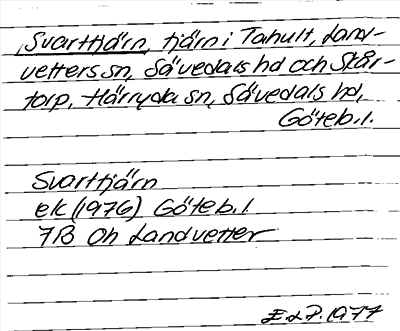 Svarttjärn, tjärn i Tahult, Land-
vetters sn, Sävedals hd och Skår-
torp, Härryda sn, Sävedals hd,
Göteb. l.
Svarttjärn
ek (1976) Göteb. l.
7B 0h Landvetter
E.L.P. 1977